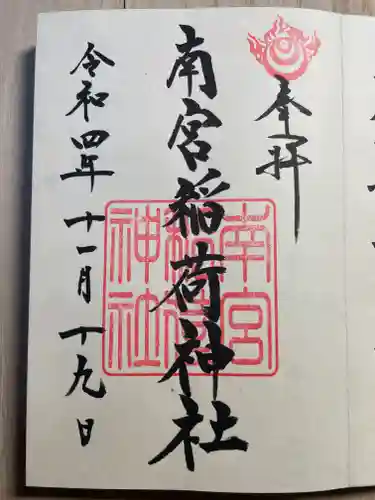 奉拝
南宮稲荷神社
南宮稲荷神社
令和四年十一月十九日